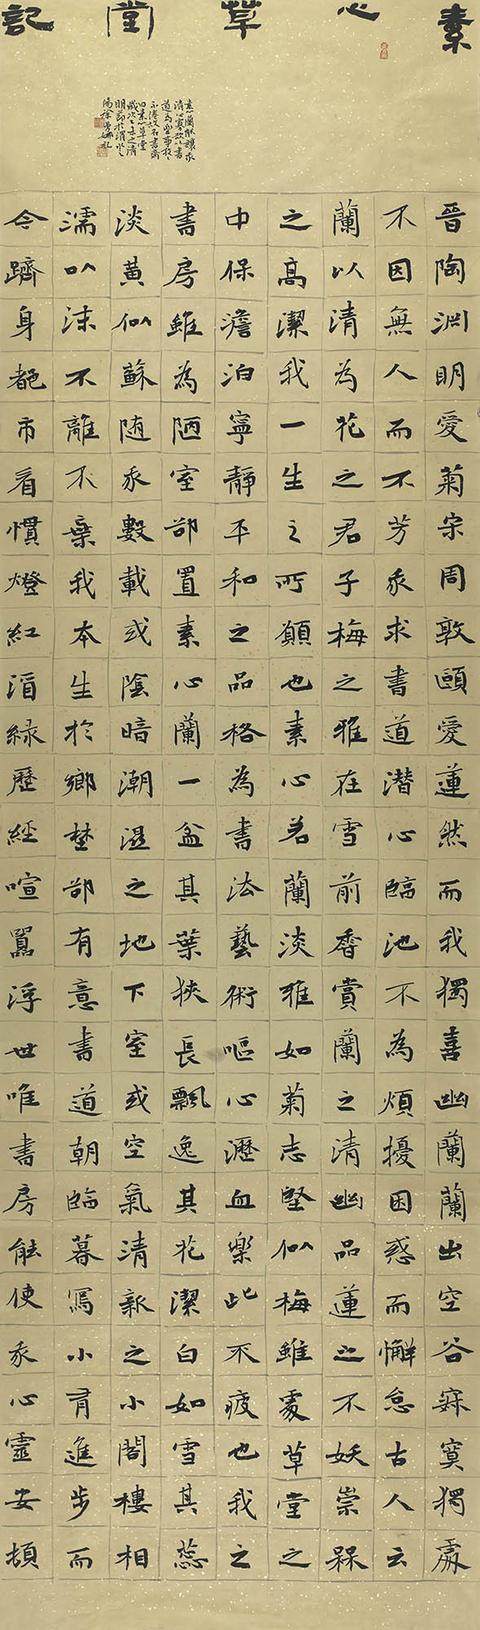 素心草堂記
晉陶渊明愛菊宋周敦頤愛蓮然而我獨喜幽蘭蘭出空谷寂寞獨處
不因無人而不芳余求書道潜心臨池不為煩擾困惑而懈怠古人云
蘭以清為花之君子梅之雅在雪前香賞蘭之清幽品蓮之不妖崇槑
之高潔我一生之所願也素心若蘭淡雅如菊志堅似梅雖處草堂之
中保澹泊寧靜平和之品格為書法藝術嘔心瀝血樂此不疲也我之
書房雖為陋室却置素心蘭一盆其葉狹長飄逸其花潔白如雪其蕊
淡黄似蘇随余數載或陰暗潮濕之地下室或空氣清新之小閣樓相
濡以沫不離不棄我本生於鄉埜却有意書道朝臨暮寫小有進步而
今躋身都市看慣燈紅酒緑歷經喧囂浮世唯書房能使余心靈安頓